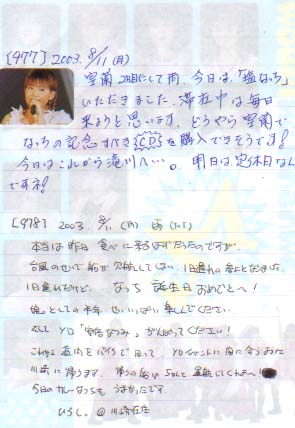 [977] 2003. 8/11 (月)
室蘭 2日目にして雨、今日は「塩なっち」
いただきました。滞在中は毎日
来ようと思います。どうやら室蘭で
なっちの記念すべきCDを購入できそうです!
今日はこれから滝川へ…。明日は定休日なん
ですネ!
[978] 2003 8/11 (月) 雨 (T-T)
本当は昨日 食べに来るはずだったのですが、
台風のせいで船が欠航してしまい、1日遅れの参上となりました。
1日遅れだけど、なっち 誕生日 おめでとへ!
娘。としての半年 せいいっぱい 楽しんでください。
そして YD 「安倍なつみ」 がんばってください!
これから 道内をバイクで回って、
川崎に帰ります。帰りの船は ちゃんと 運航してくれよ~!!
今日のカレーなっちも うまかったです。
ひろし。@川崎在住